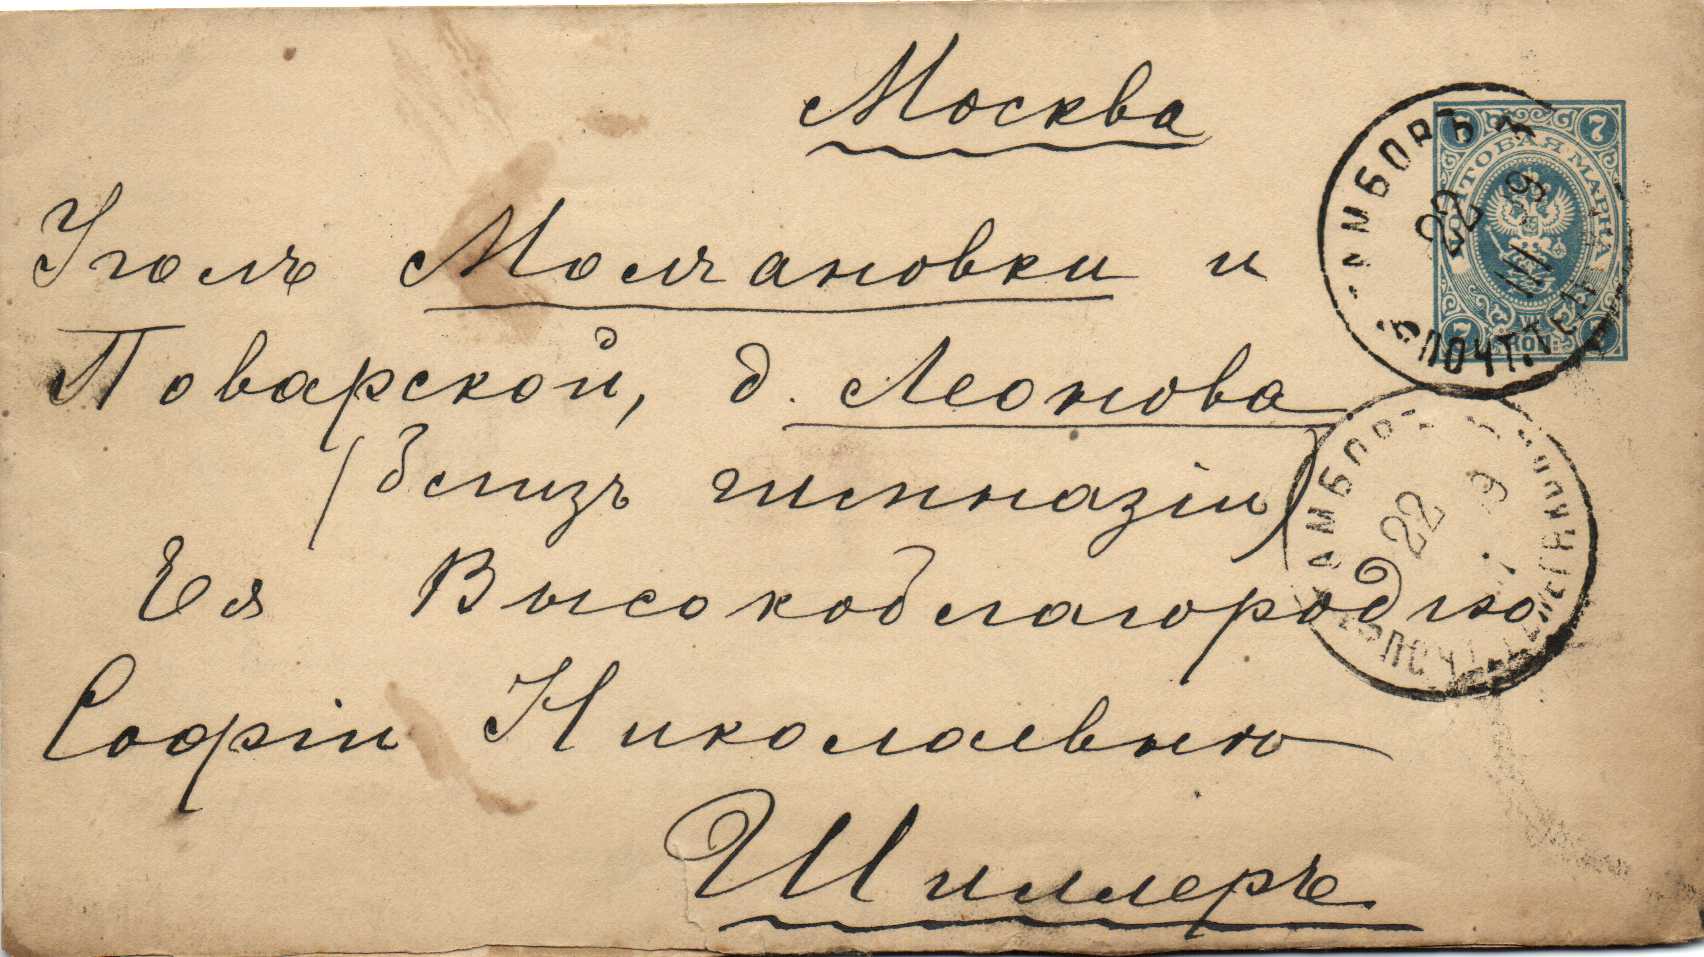 Москва
Уголъ Молчановки и
Поварской, д. Леонова
(близъ гимназіи)
Ея Высокоблагородію
Софіи Николаевнѣ
Шиллеръ.
7 7
ПОЧТОВАЯ МАРКА
7 КОП. 7
ТАМБОВЪ
22 III 9
ПОЧТ. ТЕЛ
ТАМБОВЪ
22 9